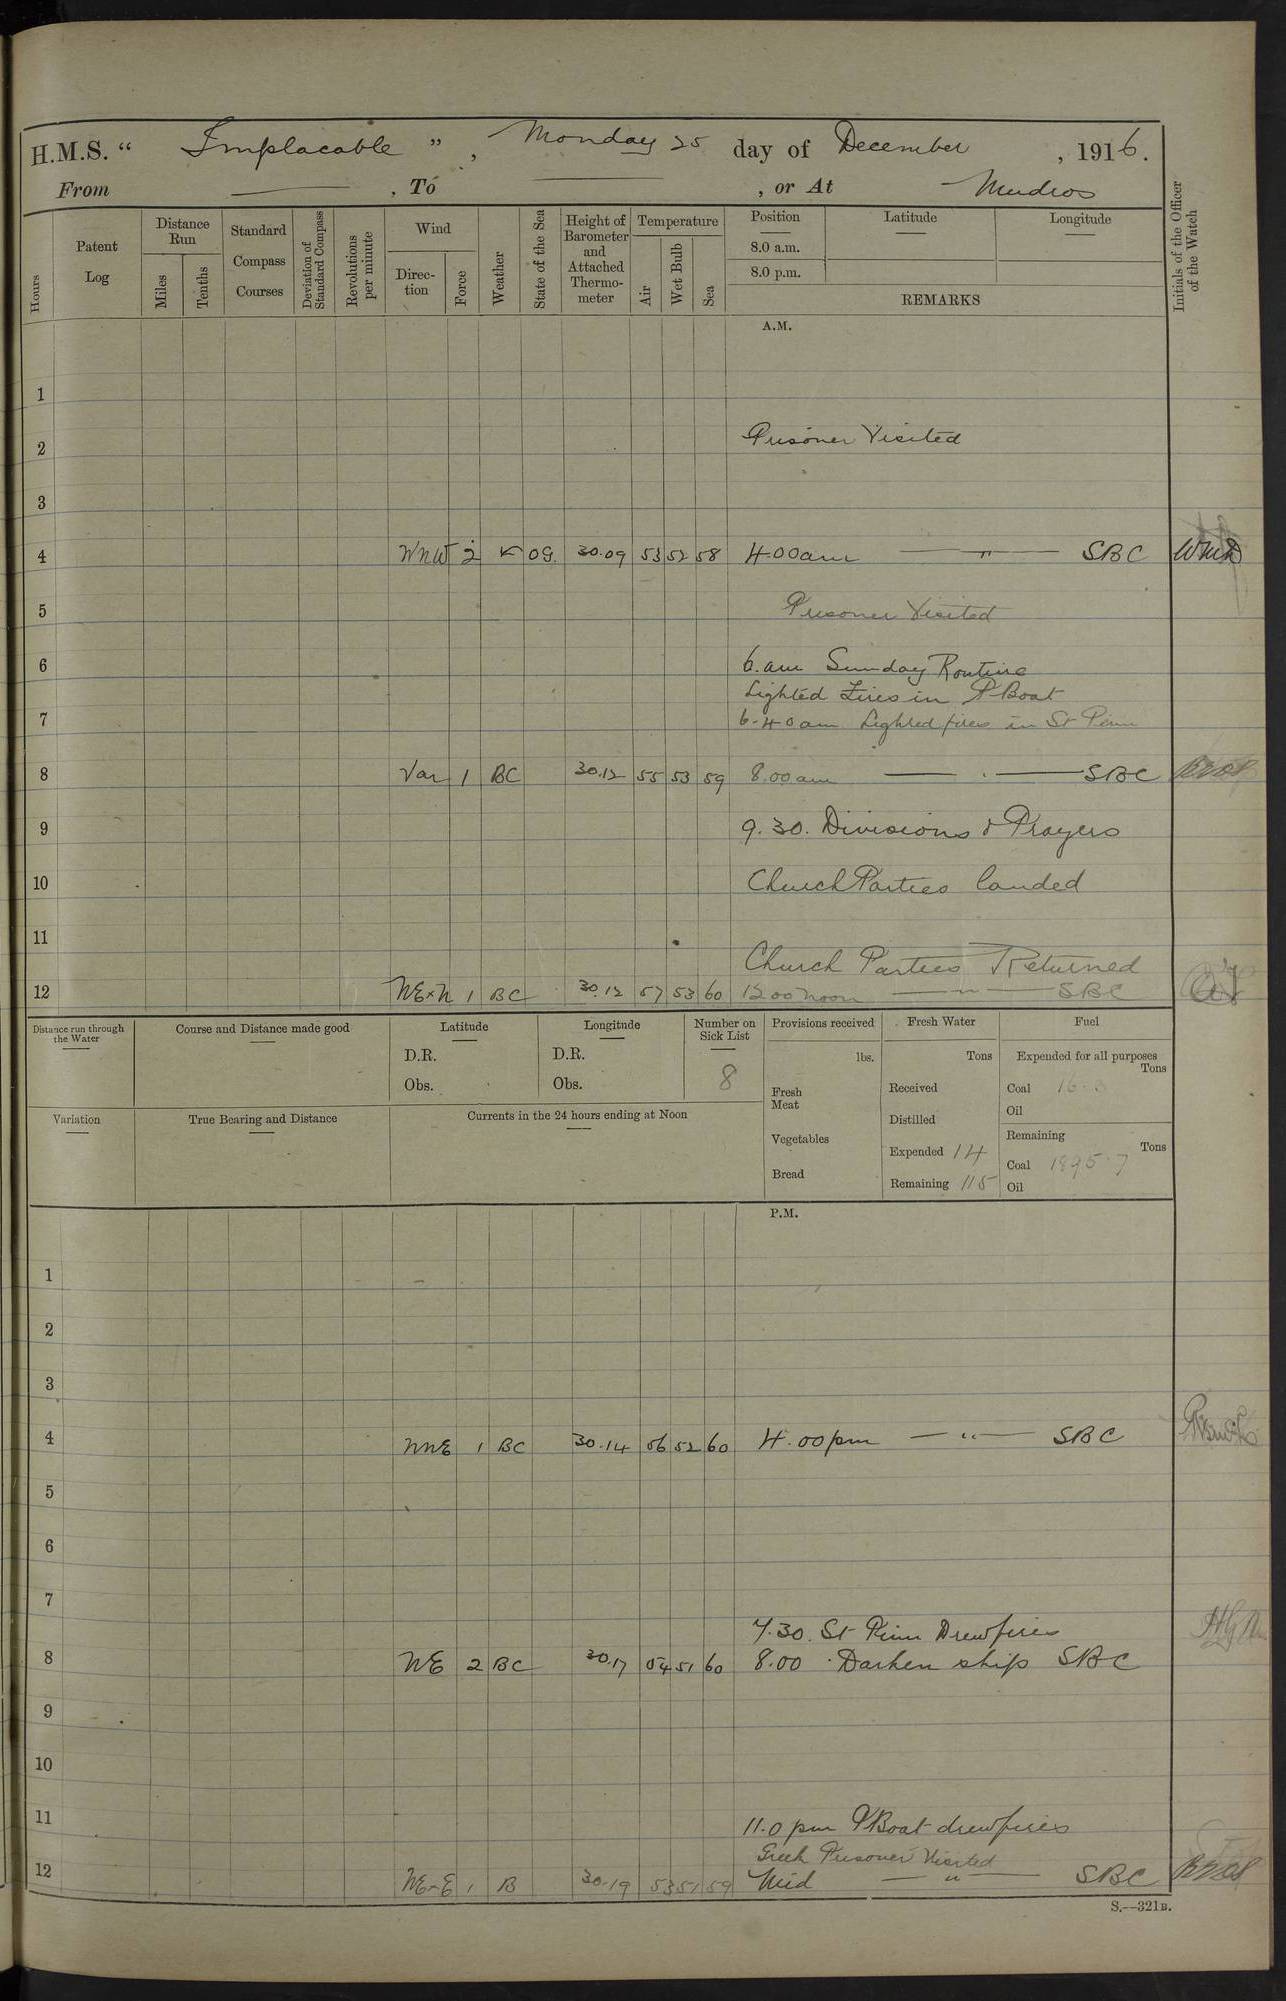 H.M.S. “ Implacable ” , Monday 25 day of December , 1916.
From —— , To —— , or At Mudros
Hours
Patent Log
Distance Run
Miles
Tenths
Standard Compass Courses
Deviation of Standard Compass
Revolutions per minute
Wind
Direction
Force
Weather
State of the Sea
Height of Barometer and Attached Thermometer
Temperature
Air
Wet Bulb
Sea
Position
8.0 a.m.
8.0 p.m.
Latitude
Longitude
REMARKS
Initials of the Officer of the Watch
A.M.
1
2 Prisoner Visited
3
4 WNW 2 OG. 30.09 53 52 58 4.00am — " — SBC
5 Prisoner Visited
6 6.am Sunday Routine
Lighted Fires in P Boat
7 6-40am Lighted fires in St Pinn
8 Var 1 BC 30.12 55 53 59 8.00am — " — SBC
9 9.30. Divisions & Prayers
10 Church Parties landed
11
Church Parties Returned
12 NExN 1 BC 30.12 57 53 60 12.00 noon — " — SBC
Distance run through the Water
Course and Distance made good
Latitude
D.R.
Obs.
Longitude
D.R.
Obs.
Number on Sick List
8
Variation
True Bearing and Distance
Currents in the 24 hours ending at Noon
Provisions received
lbs.
Fresh Meat
Vegetables
Bread
Fresh Water
Tons
Received
Distilled
Expended 14
Remaining 115
Fuel
Expended for all purposes
Tons
Coal 16.3
Oil
Remaining
Tons
Coal 1895.7
Oil
P.M.
1
2
3
4 NNE 1 BC 30.14 56 52 60 4.00pm — " — SBC
5
6
7
7.30. St Pinn Drew fires
8 NE 2 BC 30.17 54 51 60 8.00 . Darken ship SBC
9
10
11 11.0 pm P Boat drew fires
Greek Prisoner Visited
12 NExE 1 B 30.19 53 51 59 Mid — " — SBC
S.—321B.